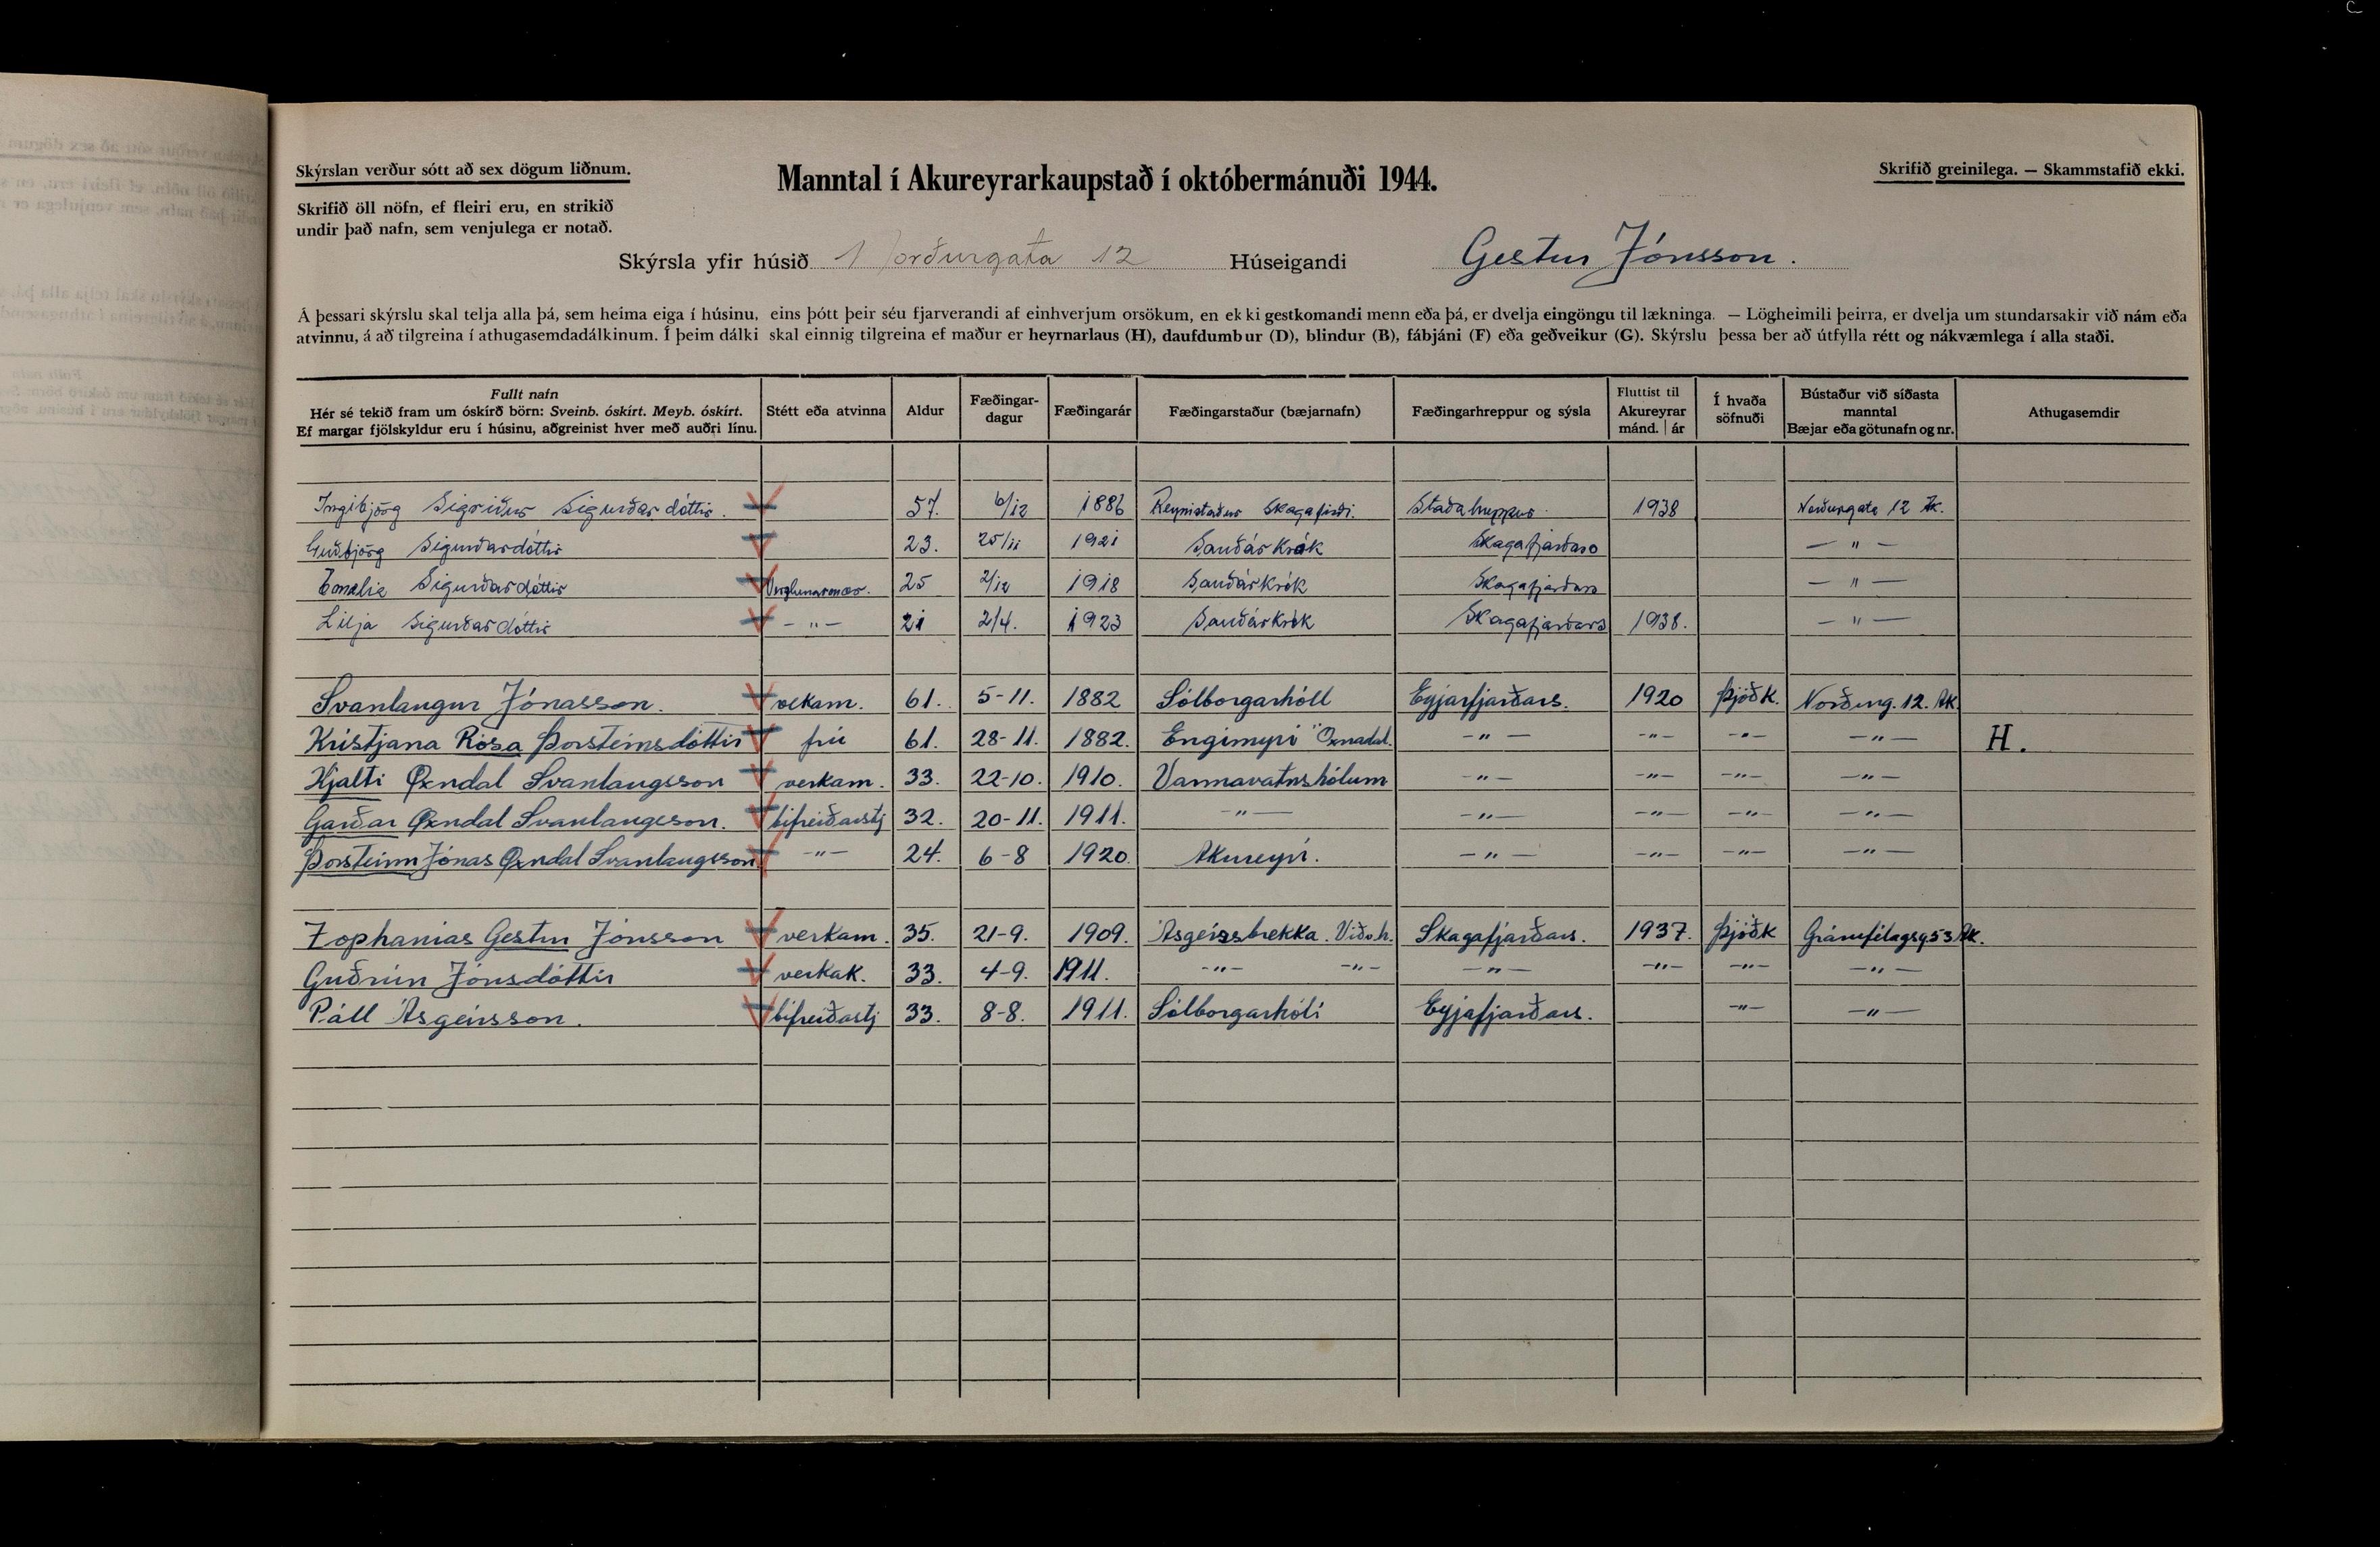 Skýrslan verður sótt að sex dögum liðnum.
Manntal í Akureyrarkaupstað í októbermánuði 1944.
Skrifið greinilega. — Skammstafið ekki.
Skrifið öll nöfn, ef fleiri eru, en strikið
undir það nafn, sem venjulega er notað.
Skýrsla yfir húsið Norðurgata 12 Húseigandi Gestur Jónsson.
Á þessari skýrslu skal telja alla þá, sem heima eiga í húsinu, eins þótt þeir séu fjarverandi af einhverjum orsökum, en ekki gestkomandi menn eða þá, er dvelja eingöngu til lækninga. — Lögheimili þeirra, er dvelja um stundarsakir við nám eða
atvinnu, á að tilgreina í athugasemdadálkinum. Í þeim dálki skal einnig tilgreina ef maður er heyrnarlaus (H), daufdumbur (D), blindur (B), fábjáni (F) eða geðveikur (G). Skýrslu þessa ber að útfylla rétt og nákvæmlega í alla staði.
Fullt nafn
Hér sé tekið fram um óskírð börn: Sveinb. óskírt. Meyb. óskírt.
Ef margar fjölskyldur eru í húsinu, aðgreinist hver með auðri línu.
Stétt eða atvinna
Aldur
Fæðingar-
dagur
Fæðingarár
Fæðingarstaður (bæjarnafn)
Fæðingarhreppur og sýsla
Fluttist til
Akureyrar
mánd. | ár
Í hvaða
söfnuði
Bústaður við síðasta
manntal
Bæjar eða götunafn og nr.
Athugasemdir
Ingibjörg Sigríður Sigurðardóttir. 57. 6/12 1886 Reynistaður Skagafirði. Staðahreppur 1938 Norðurgata 12 Ak.
Guðbjörg Sigurðardóttir 23. 25/11 1921 Sauðárkrók Skagafjarðars — " —
Emelia Sigurðardóttir 25 2/12 1918 Sauðárkrók Skagafjarðars — " —
Lilja Sigurðardóttir — " — 21 2/4. 1923 Sauðárkrók Skagafjarðars 1938. — " —
Svanlaugur Jónasson. vekam. 61. 5-11. 1882 Sólborgarhóll Eyjarfjarðars. 1920 Þjóðk. Norðurg. 12. Ak.
Kristjana Rósa Þorsteinsdóttir frú 61. 28-11. 1882. Engimyri Öxnadal. — " — — " — — " — — " — H.
Hjalti Öxndal Svanlaugsson verkam. 33. 22-10. 1910. Varmavatnshólum — " — — " — — " — — " —
Garðar Öxndal Svanlaugsson. bifreiðarstj 32. 20-11. 1911. — " — — " — — " — — " — — " —
Þorsteinn Jónas Öxndal Svanlaugsson — " — 24. 6-8 1920. Akureyri. — " — — " — — " — — " —
Zophanías Gestur Jónsson verkam. 35. 21-9. 1909. Ásgeirsbrekka. Viðv.h. Skagafjarðars. 1937. Þjóðk Gránufélagsg.53 Ak.
Guðrún Jónsdóttir verkak. 33. 4-9. 1911. — " — — " — — " — — " — — " — — " —
Páll Ásgeirsson. bifreiðastj 33. 8-8. 1911. Sólborgarhóli Eyjafjarðars. — " — — " —